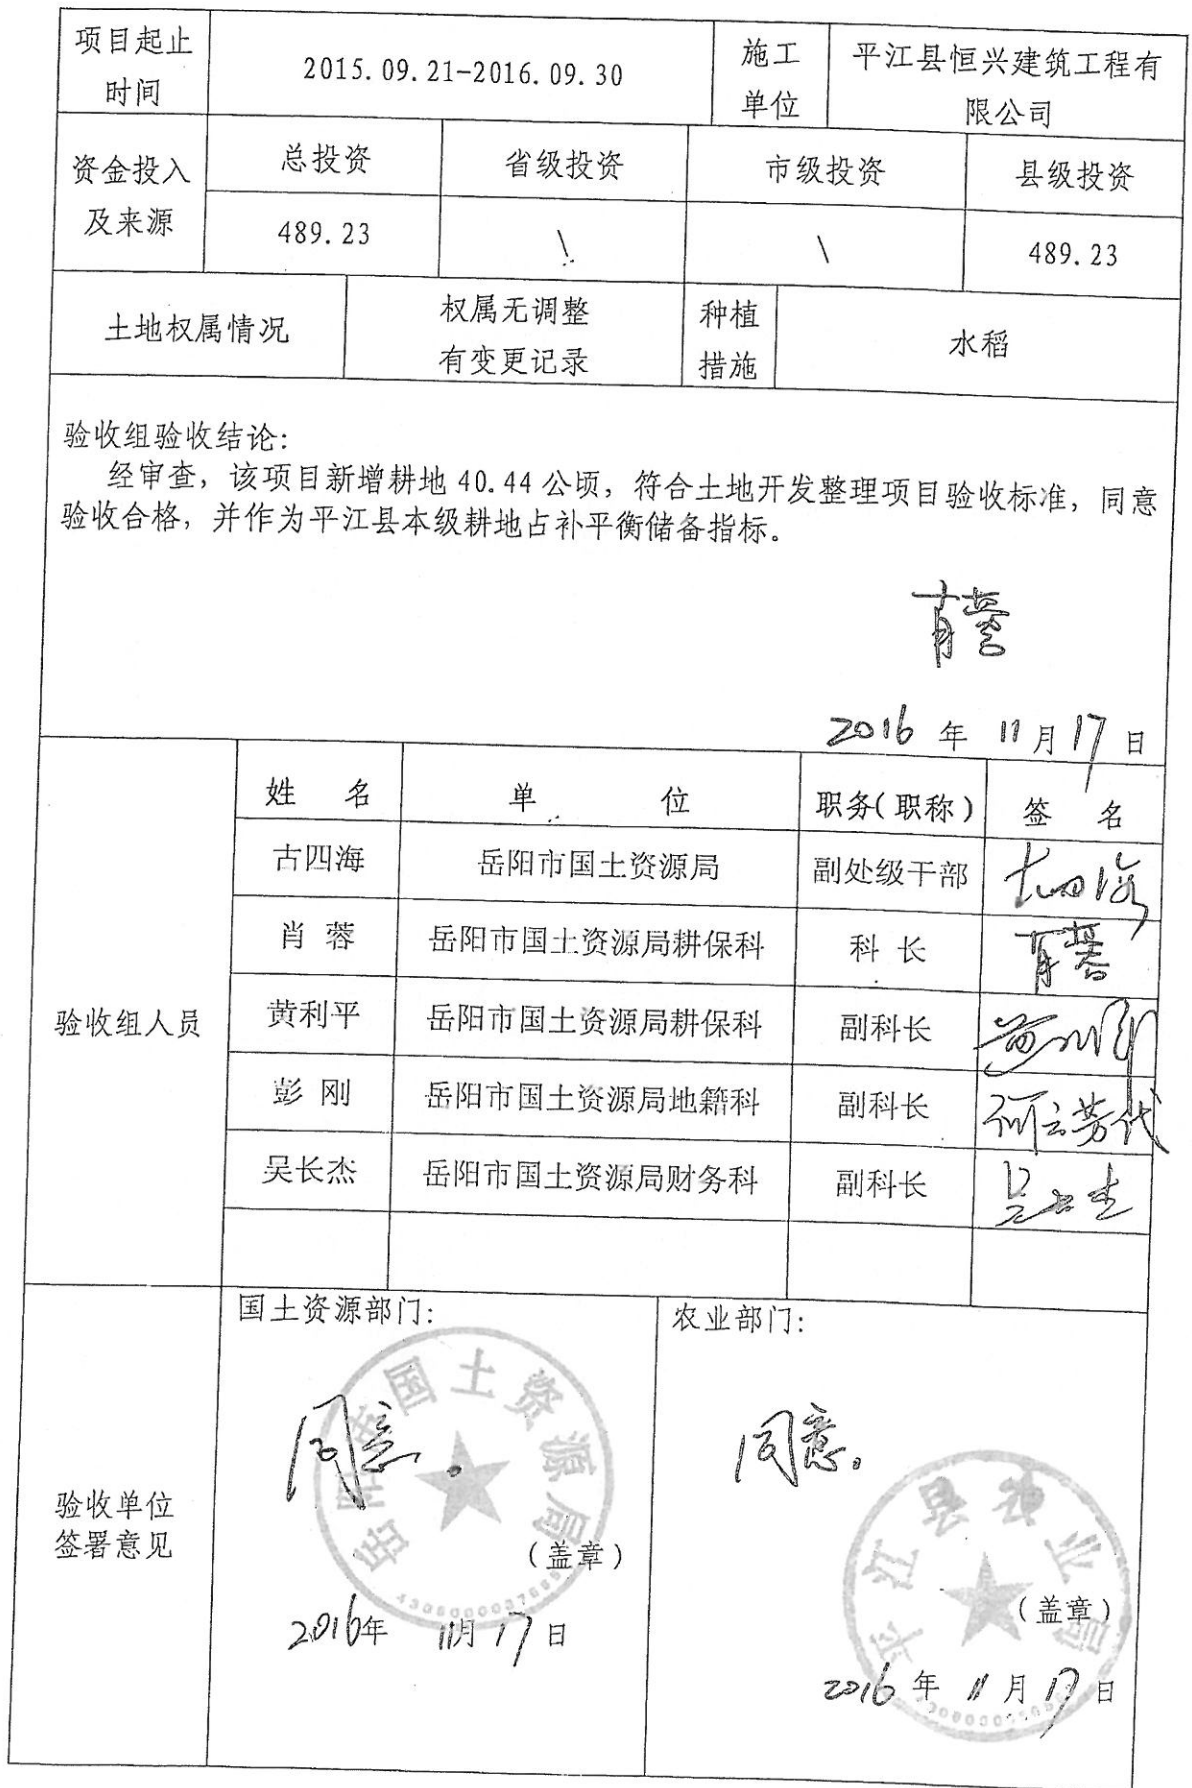 项目起止
时间
2015.09.21-2016.09.30
施工
单位
平江县恒兴建筑工程有
限公司
资金投入
及来源
总投资
省级投资
市级投资
县级投资
489.23
\
\
489.23
土地权属情况
权属无调整
有变更记录
种植
措施
水稻
验收组验收结论：
经审查，该项目新增耕地 40.44 公顷，符合土地开发整理项目验收标准，同意
验收合格，并作为平江县本级耕地占补平衡储备指标。
肖蓉
2016 年 11 月 17 日
验收组人员
姓 名
单 位
职务（职称）
签 名
古四海
岳阳市国土资源局
副处级干部
古四海
肖 蓉
岳阳市国土资源局耕保科
科 长
肖蓉
黄利平
岳阳市国土资源局耕保科
副科长
彭 刚
岳阳市国土资源局地籍科
副科长
何云芳代
吴长杰
岳阳市国土资源局财务科
副科长
吴长杰
验收单位
签署意见
国土资源部门：
同意。
岳阳市国土资源局
（盖章）
2016年 11月 17日
农业部门：
同意。
平江县农业局
（盖章）
2016 年 11 月 17 日